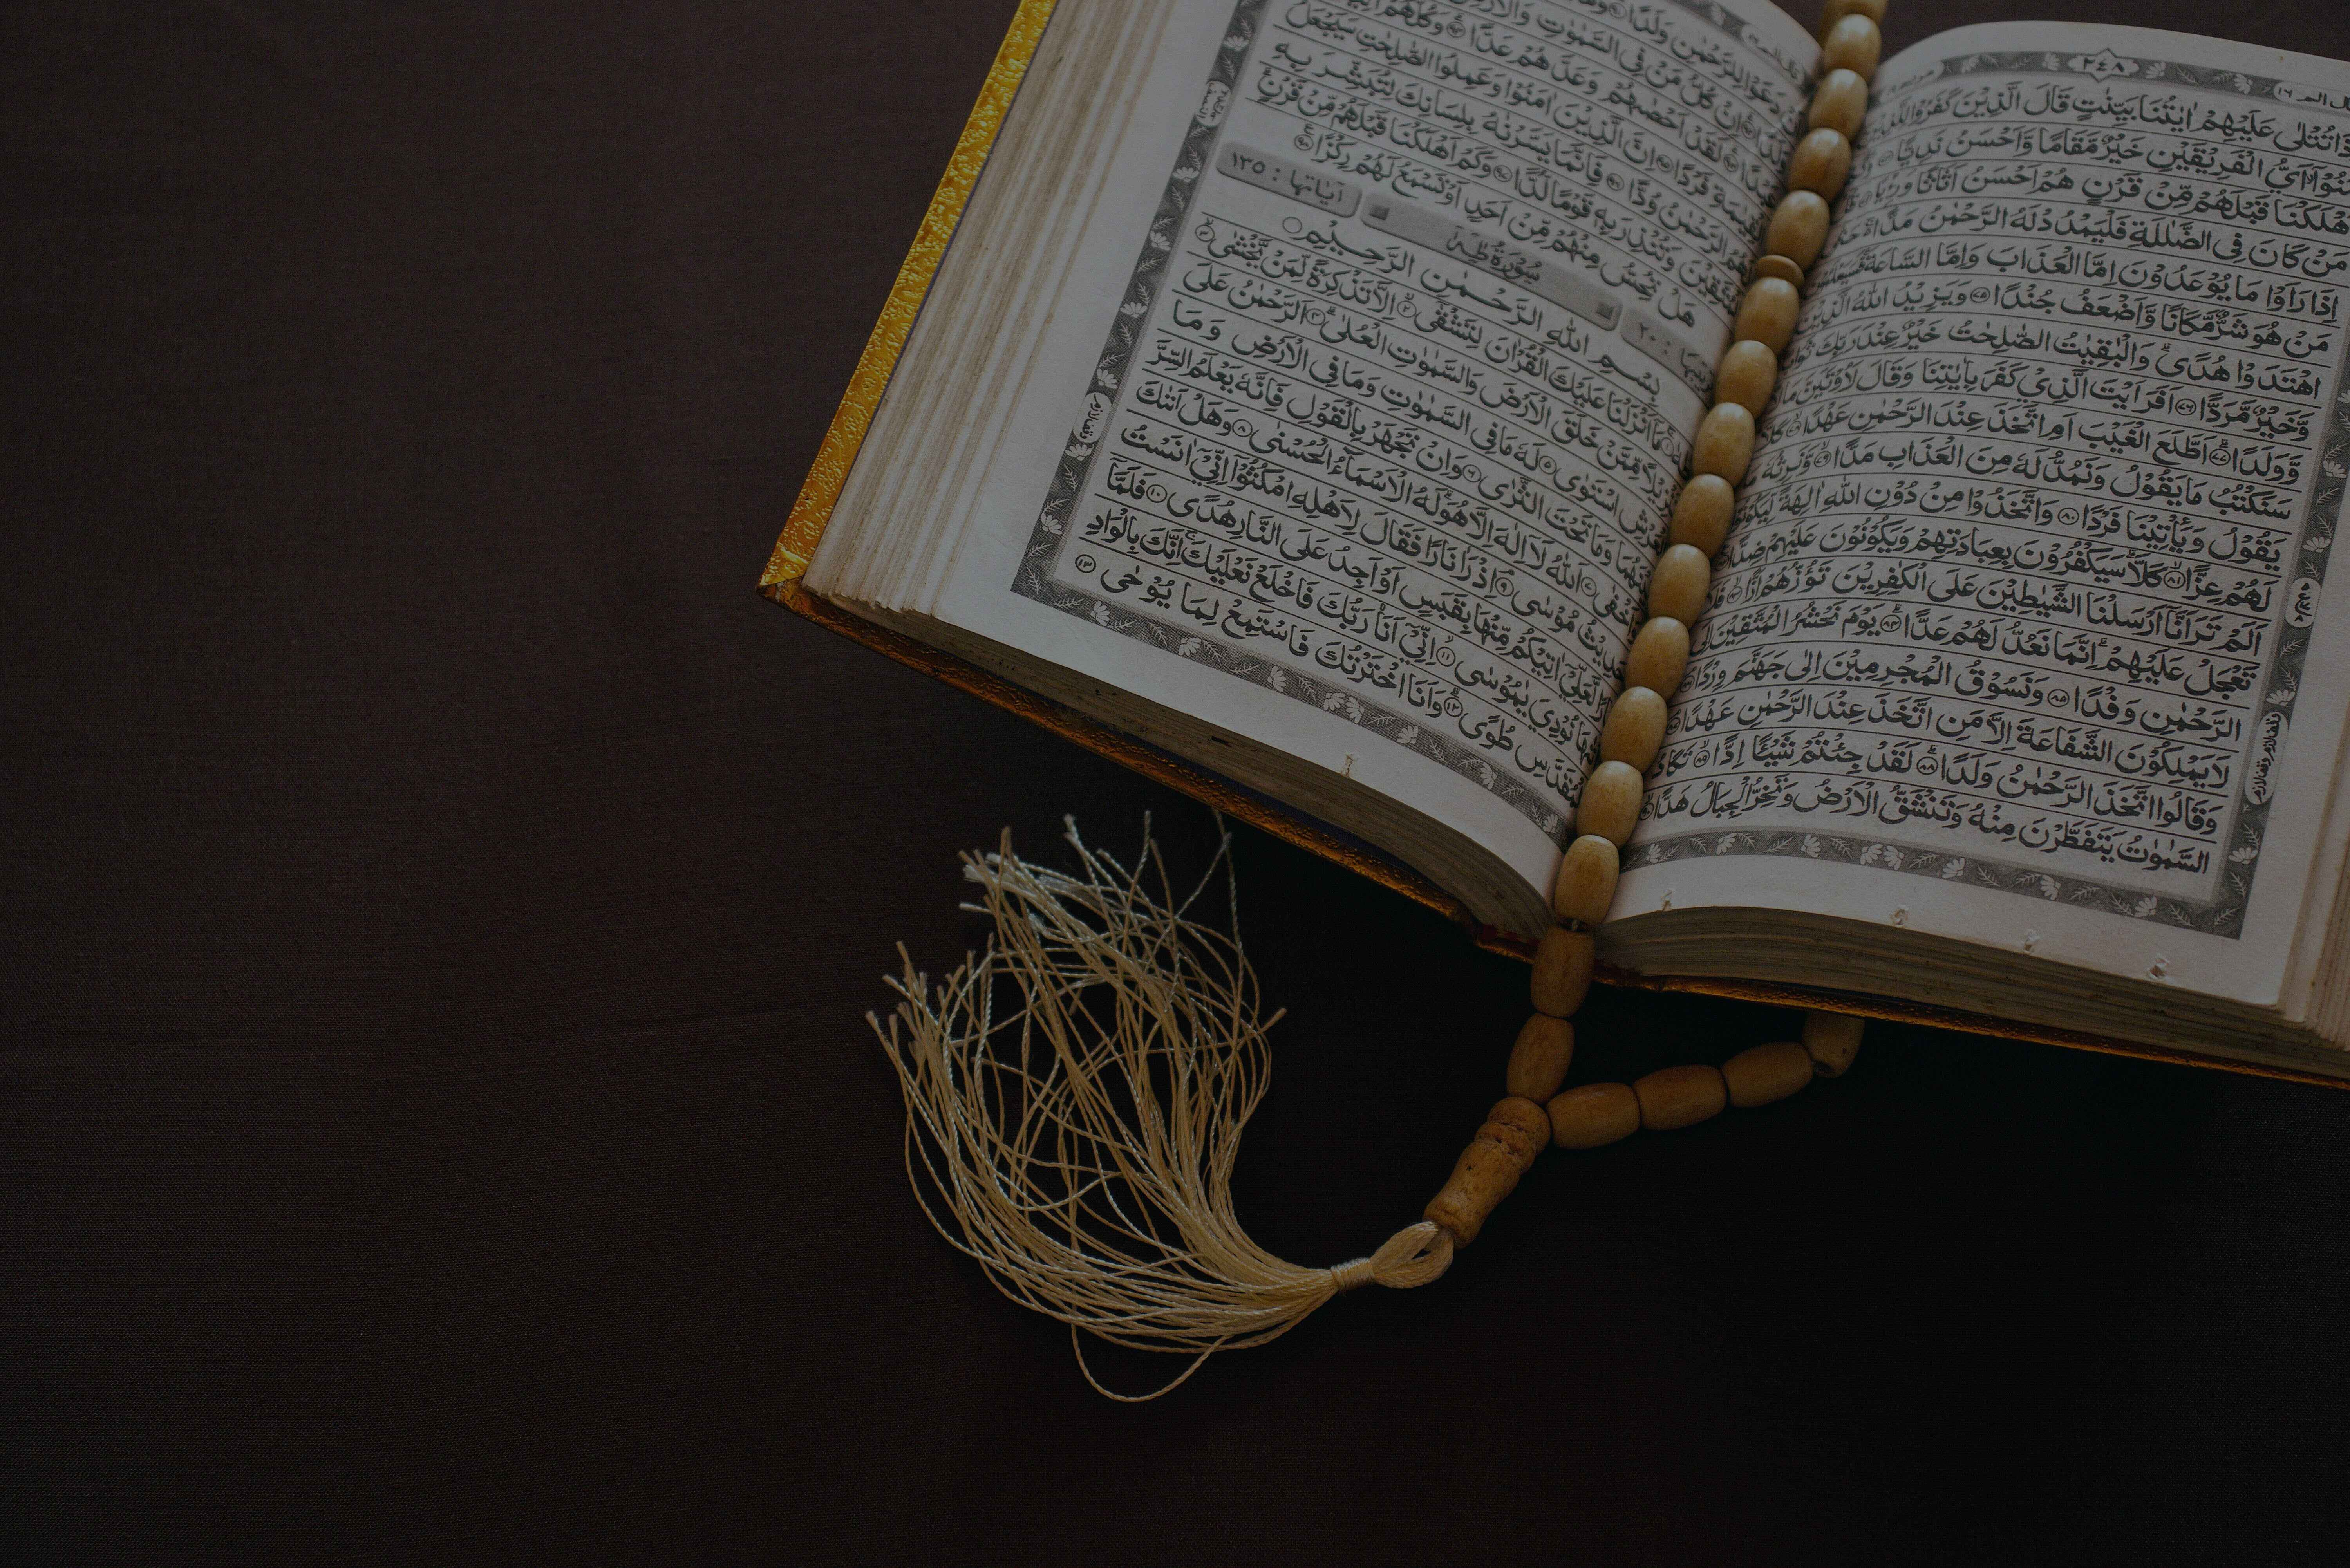 ٢٤٨
قال الم ١٦
عَلَيْهِمْ اٰيٰتُنَا بَيِّنٰتٍ قَالَ الَّذِيْنَ كَفَرُوْا
اَيُّ الْفَرِيْقَيْنِ خَيْرٌ مَّقَامًا وَّاَحْسَنُ نَدِيًّا
اَهْلَكْنَا قَبْلَهُمْ مِّنْ قَرْنٍ هُمْ اَحْسَنُ اَثَاثًا وَّرِءْيًا
مَنْ كَانَ فِى الضَّلٰلَةِ فَلْيَمْدُدْ لَهُ الرَّحْمٰنُ مَدًّا
اِذَا رَاَوْا مَا يُوْعَدُوْنَ اِمَّا الْعَذَابَ وَاِمَّا السَّاعَةَ
مَنْ هُوَ شَرٌّ مَّكَانًا وَّاَضْعَفُ جُنْدًا ٧٥ وَيَزِيْدُ اللهُ الَّذِيْنَ
اهْتَدَوْا هُدًى وَالْبٰقِيٰتُ الصّٰلِحٰتُ خَيْرٌ عِنْدَ رَبِّكَ
وَّخَيْرٌ مَّرَدًّا ٧٦ اَفَرَاَيْتَ الَّذِيْ كَفَرَ بِاٰيٰتِنَا وَقَالَ لَاُوْتَيَنَّ مَا
وَّوَلَدًا ٧٧ اَطَّلَعَ الْغَيْبَ اَمِ اتَّخَذَ عِنْدَ الرَّحْمٰنِ عَهْدًا ٧٨
سَنَكْتُبُ مَا يَقُوْلُ وَنَمُدُّ لَهٗ مِنَ الْعَذَابِ مَدًّا ٧٩ وَّنَرِثُهٗ
يَقُوْلُ وَيَأْتِيْنَا فَرْدًا ٨٠ وَاتَّخَذُوْا مِنْ دُوْنِ اللهِ اٰلِهَةً
لَهُمْ عِزًّا ٨١ كَلَّا سَيَكْفُرُوْنَ بِعِبَادَتِهِمْ وَيَكُوْنُوْنَ عَلَيْهِمْ ضِدًّا
اَلَمْ تَرَ اَنَّا اَرْسَلْنَا الشَّيٰطِيْنَ عَلَى الْكٰفِرِيْنَ تَؤُزُّهُمْ اَزًّا ٨٣
تَعْجَلْ عَلَيْهِمْ اِنَّمَا نَعُدُّ لَهُمْ عَدًّا ٨٤ يَوْمَ نَحْشُرُ الْمُتَّقِيْنَ
الرَّحْمٰنِ وَفْدًا ٨٥ وَّنَسُوْقُ الْمُجْرِمِيْنَ اِلٰى جَهَنَّمَ وِرْدًا
لَا يَمْلِكُوْنَ الشَّفَاعَةَ اِلَّا مَنِ اتَّخَذَ عِنْدَ الرَّحْمٰنِ عَهْدًا
وَقَالُوا اتَّخَذَ الرَّحْمٰنُ وَلَدًا ٨٨ لَقَدْ جِئْتُمْ شَيْئًا اِدًّا ٨٩ تَكَادُ
السَّمٰوٰتُ يَتَفَطَّرْنَ مِنْهُ وَتَنْشَقُّ الْاَرْضُ وَتَخِرُّ الْجِبَالُ هَدًّا
دَعَوْا لِلرَّحْمٰنِ وَلَدًا
اِنْ كُلُّ مَنْ فِى السَّمٰوٰتِ وَالْاَرْضِ
لَقَدْ اَحْصٰىهُمْ وَعَدَّهُمْ عَدًّا ٩٤ وَكُلُّهُمْ
فَرْدًا ٩٥ اِنَّ الَّذِيْنَ اٰمَنُوْا وَعَمِلُوا الصّٰلِحٰتِ سَيَجْعَلُ
لَهُمُ الرَّحْمٰنُ وُدًّا ٩٦ فَاِنَّمَا يَسَّرْنٰهُ بِلِسَانِكَ لِتُبَشِّرَ بِهِ
الْمُتَّقِيْنَ وَتُنْذِرَ بِهٖ قَوْمًا لُّدًّا ٩٧ وَكَمْ اَهْلَكْنَا قَبْلَهُمْ مِّنْ قَرْنٍ
هَلْ تُحِسُّ مِنْهُمْ مِّنْ اَحَدٍ اَوْ تَسْمَعُ لَهُمْ رِكْزًا ٩٨
٢٠ سُوْرَةُ طٰهٰ اٰيَاتُهَا : ١٣٥
بِسْمِ اللهِ الرَّحْمٰنِ الرَّحِيْمِ
مَا اَنْزَلْنَا عَلَيْكَ الْقُرْاٰنَ لِتَشْقٰى ٢ اِلَّا تَذْكِرَةً لِّمَنْ يَّخْشٰى ٣
مِّمَّنْ خَلَقَ الْاَرْضَ وَالسَّمٰوٰتِ الْعُلٰى ٤ اَلرَّحْمٰنُ عَلَى
الْعَرْشِ اسْتَوٰى ٥ لَهٗ مَا فِى السَّمٰوٰتِ وَمَا فِى الْاَرْضِ وَمَا
بَيْنَهُمَا وَمَا تَحْتَ الثَّرٰى ٦ وَاِنْ تَجْهَرْ بِالْقَوْلِ فَاِنَّهٗ يَعْلَمُ السِّرَّ
وَاَخْفٰى ٧ اَللهُ لَا اِلٰهَ اِلَّا هُوَ لَهُ الْاَسْمَاءُ الْحُسْنٰى ٨ وَهَلْ اَتٰىكَ
حَدِيْثُ مُوْسٰى ٩ اِذْ رَاٰ نَارًا فَقَالَ لِاَهْلِهِ امْكُثُوْا اِنِّيْ اٰنَسْتُ
لَّعَلِّيْ اٰتِيْكُمْ مِّنْهَا بِقَبَسٍ اَوْ اَجِدُ عَلَى النَّارِ هُدًى ١٠ فَلَمَّا
اَتٰىهَا نُوْدِيَ يٰمُوْسٰى ١١ اِنِّيْ اَنَا رَبُّكَ فَاخْلَعْ نَعْلَيْكَ اِنَّكَ بِالْوَادِ
الْمُقَدَّسِ طُوًى ١٢ وَاَنَا اخْتَرْتُكَ فَاسْتَمِعْ لِمَا يُوْحٰى ١٣